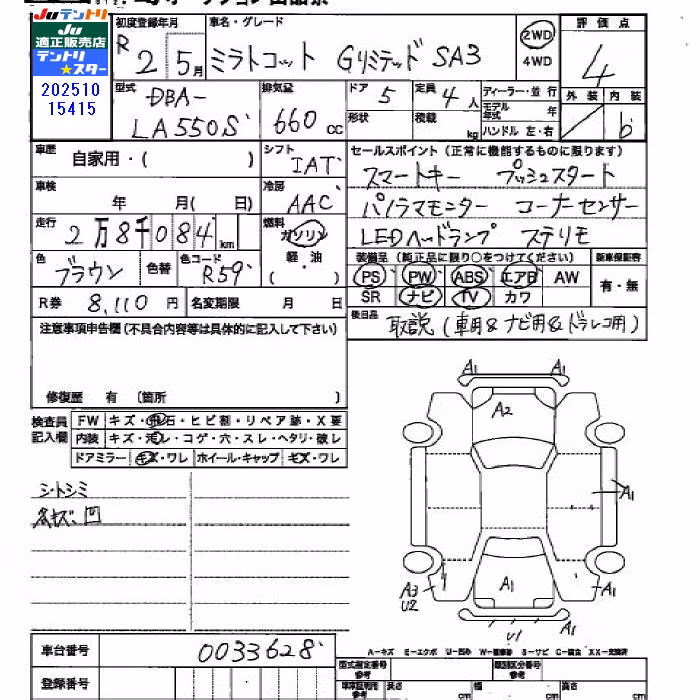 JUテントリ
JU
適正販売店
テントリ
★スター
202510
15415
初度登録年月
R 2 5月
車名・グレード
ミラトコット Gリミテッド SA3
2WD
4WD
評価点
4
外装 内装
b
型式
DBA-
LA550S
排気量
660 cc
ドア 5
形状
定員 4人
積載 kg
ディーラー・並行
モデル年式 年
ハンドル 左・右
車歴
自家用・( )
シフト
IAT
セールスポイント(正常に機能するものに限ります)
スマートキー プッシュスタート
パノラマモニター コーナーセンサー
LEDヘッドランプ ステリモ
車検
年 月( 日)
冷房
AAC
走行
2万8千084km
燃料
ガソリン
軽・油
( )
色
ブラウン
色替
色コード
R59
装備品(純正品に限り○をつけてください)
PS PW ABS エアB AW
SR ナビ TV カワ
新車保証書
有・無
R券 8,110円
名変期限 月 日
後日品
取説(車用&ナビ用&ドラレコ用)
注意事項申告欄(不具合内容等は具体的に記入して下さい)
修復歴 有 〔箇所 〕
検査員
記入欄
FW キズ・飛石・ヒビ割・リペア跡・X要
内装 キズ・汚レ・コゲ・穴・スレ・ヘタリ・破レ
ドアミラー キズ・ワレ ホイール・キャップ キズ・ワレ
シートシミ
各キズ、凹
A1 A1
A2
A1
A1
A3
U2
A1
U1
A1
車台番号 0033628
登録番号
A-キズ E-エクボ U-凹み S-サビ C-腐食 XX-交換済
型式指定番号
参考
類別区分番号
参考
長さ cm
幅 cm
高さ cm